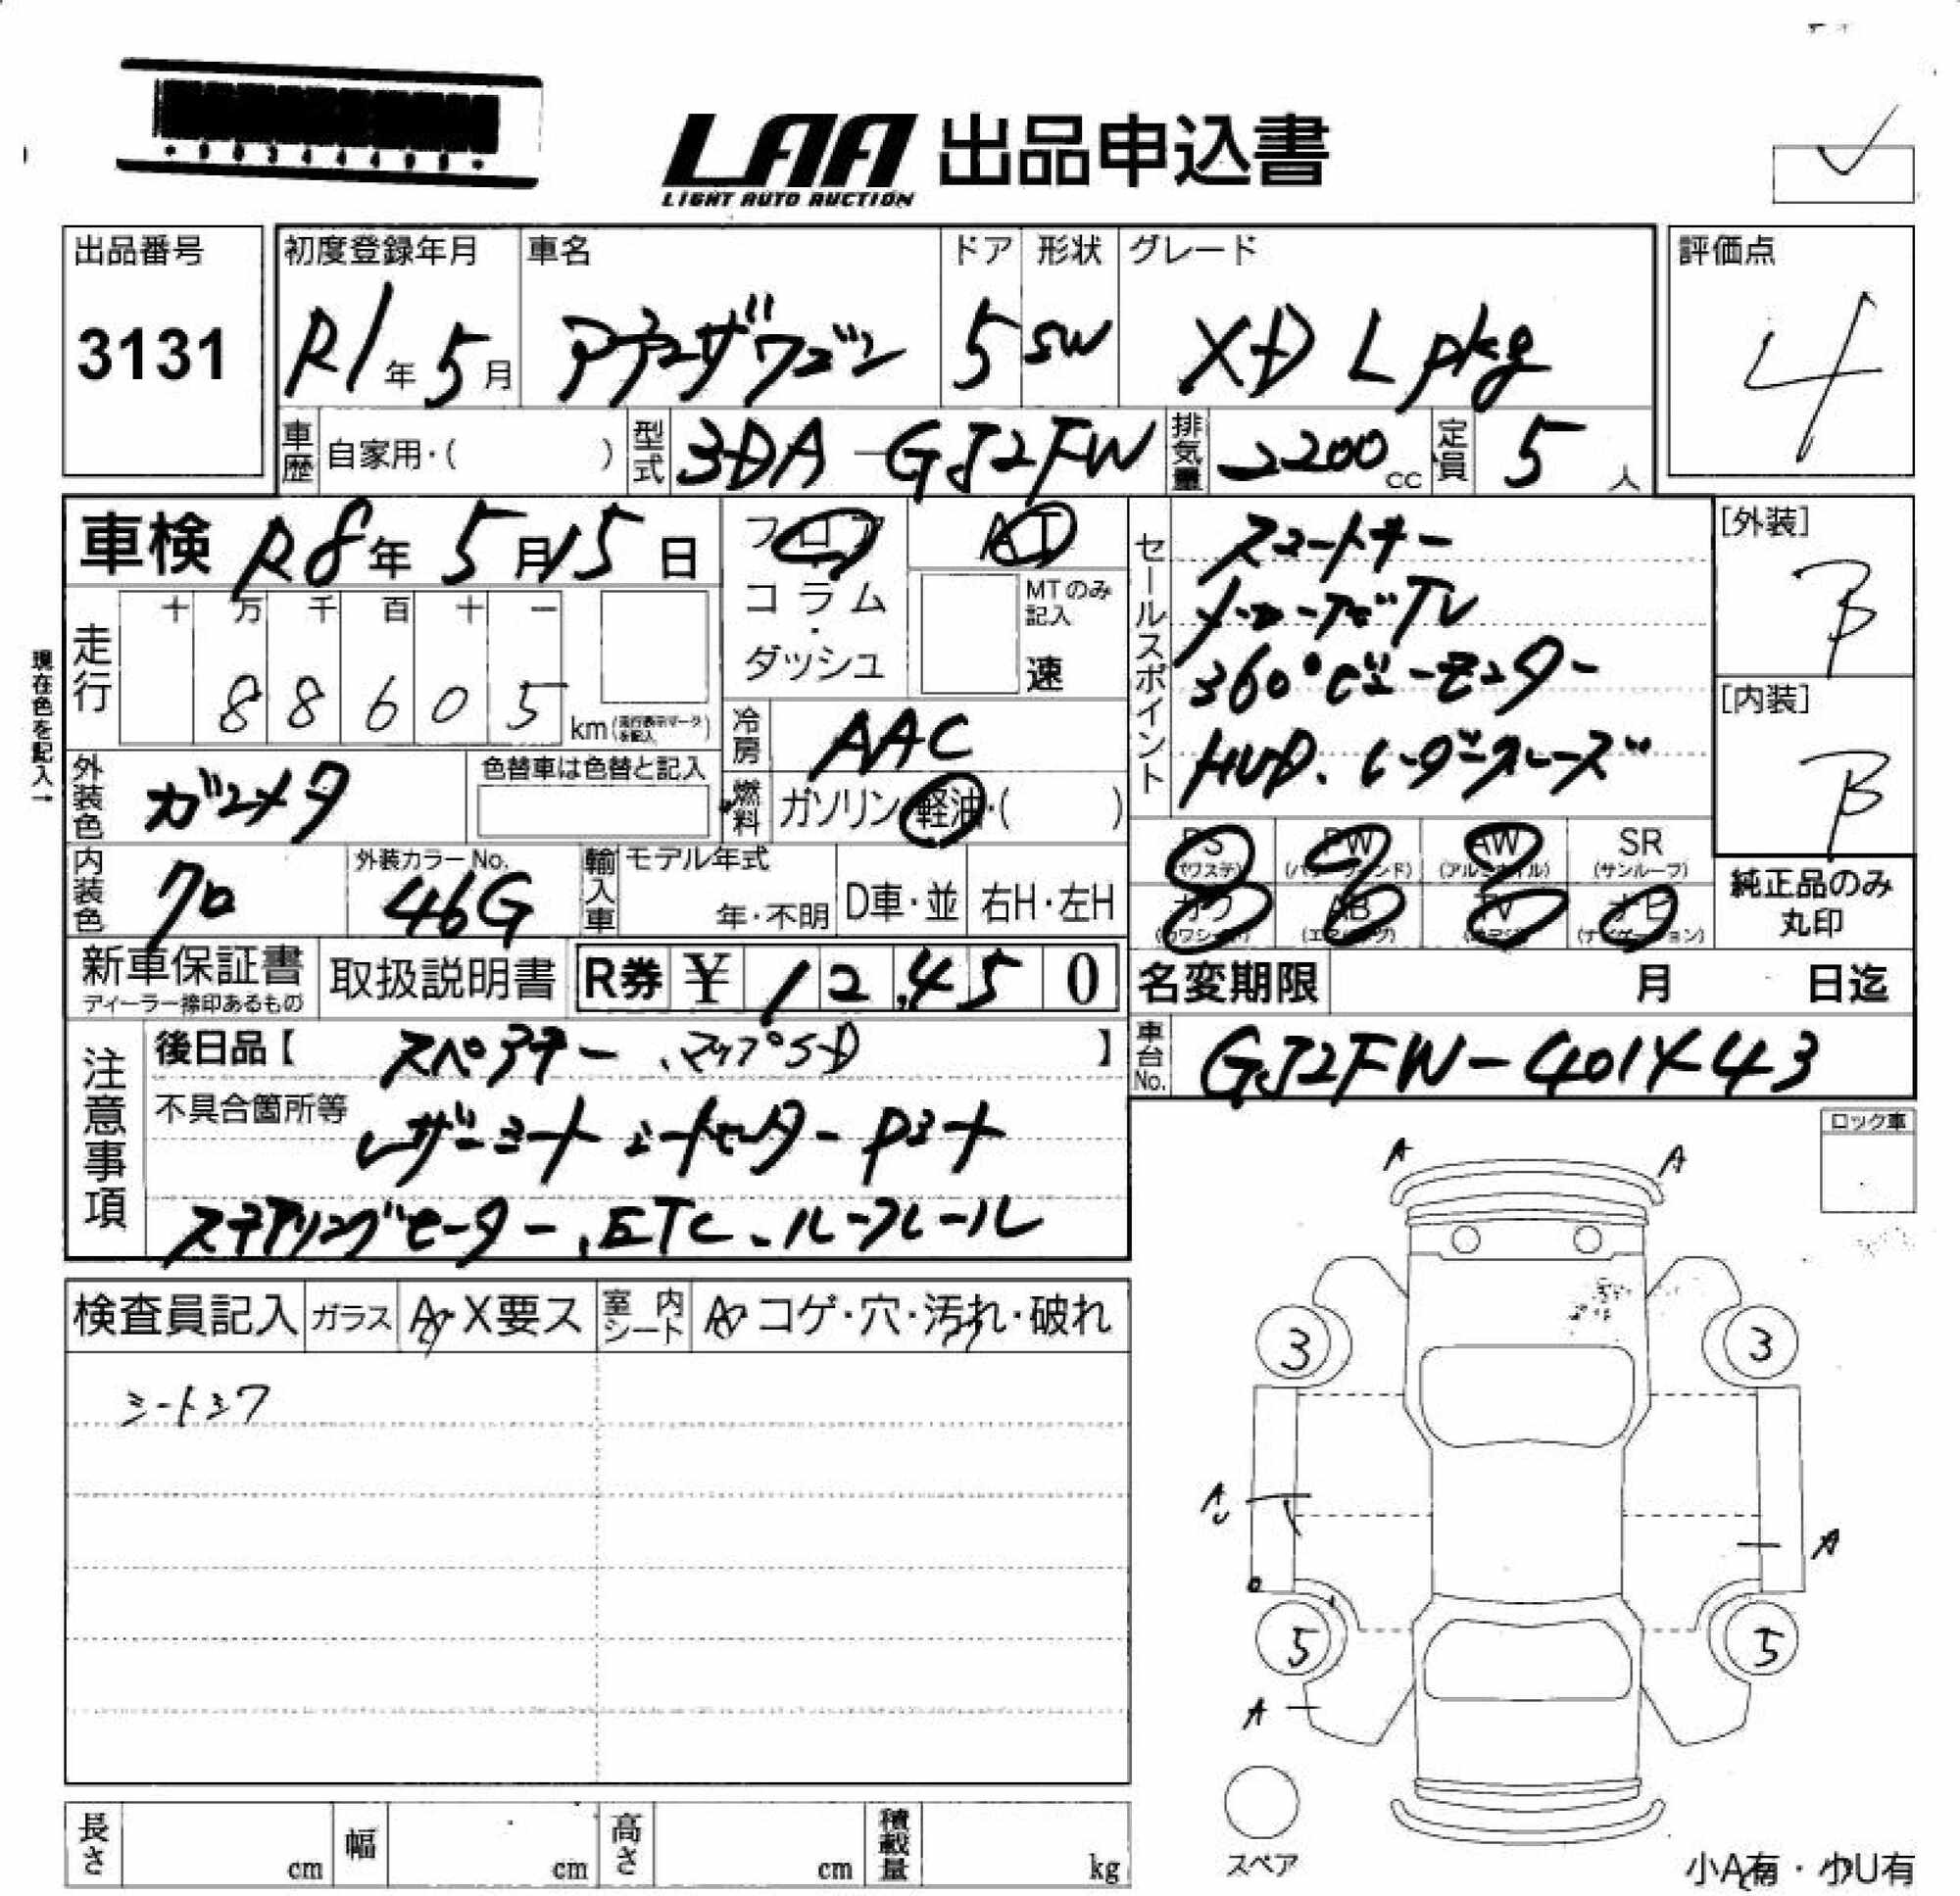 LAA 出品申込書
LIGHT AUTO AUCTION
出品番号
3131
初度登録年月
R1年5月
車名
アテンザワゴン
ドア
5
形状
SW
グレード
XD L pkg
評価点
4
車歴
自家用・( )
型式
3DA-GJ2FW
排気量
2200cc
定員
5人
車検 R8年5月15日
フロア
コラム
・
ダッシュ
AT
MTのみ記入
速
セールスポイント
スマートキー
メーカーナビTV
360°ビューモニター
HUD、レーダークルーズ
[外装]
B
[内装]
B
現在色を記入→
走行
十 万 千 百 十 一
88605
km(走行表示マークを記入)
冷房
AAC
燃料
ガソリン・軽油・( )
外装色
ガンメタ
色替車は色替と記入
内装色
クロ
外装カラーNo.
46G
輸入車
モデル年式
年・不明
D車・並
右H・左H
PS
(パワステ)
PW
(パワーウィンド)
AW
(アルミホイル)
SR
(サンルーフ)
カワ
(カワシート)
AB
(エアバッグ)
TV
ナビ
(ナビゲーション)
純正品のみ
丸印
新車保証書
ディーラー捺印あるもの
取扱説明書
R券 ¥ 12,450
名変期限 月 日迄
車台No.
GJ2FW-401443
注意事項
後日品【 スペアキー、マップSD 】
不具合箇所等
レザーシート シートヒーター Pシート
ステアリングヒーター、ETC、ルーフレール
ロック車
検査員記入
ガラス
A・X要ス
室内シート
A・コゲ・穴・汚れ・破れ
シートシワ
A
A
3
3
A
U
A
5
5
A
スペア
小A有・小U有
長さ
cm
幅
cm
高さ
cm
積載量
kg